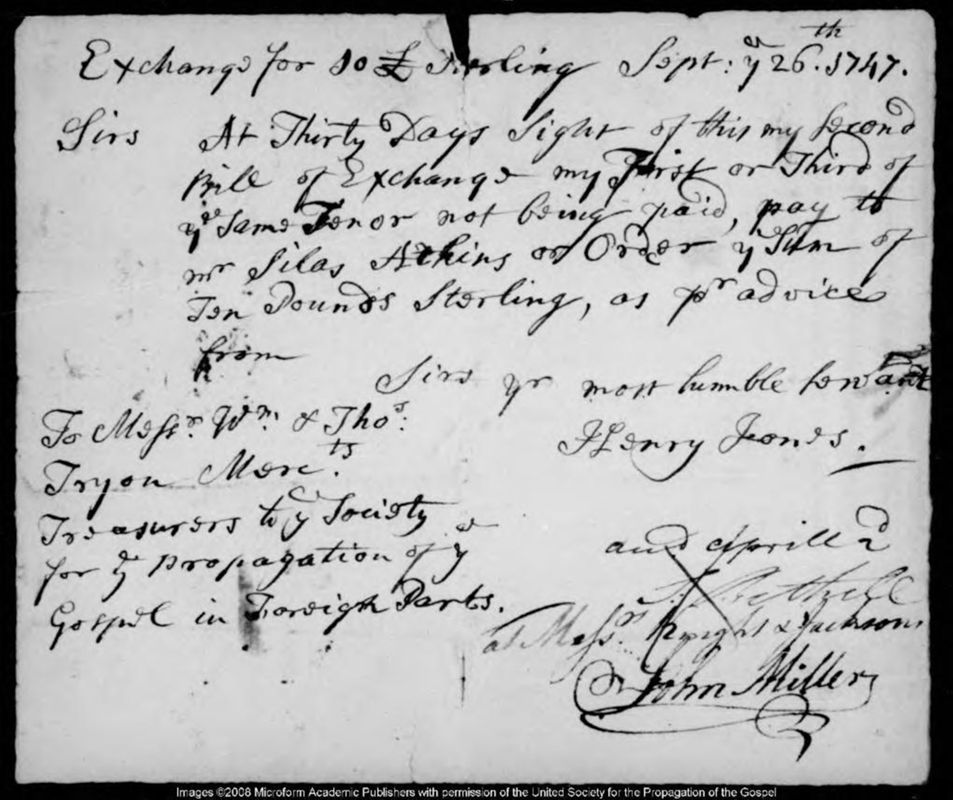 Exchange for 10 £ Sterling Sept: yͤ 26.th 1747.
Sirs At Thirty Days Sight of this my second
Bill of Exchange my First or Third of
yͤ Same Tenor not being paid, pay to
mr Silas Atkins or Order yͤ Sum of
Ten Pounds Sterling, as pr advice
from
Sirs yr most humble servant
Henry Jones.
To Messrs. Wm. & Thos.
Tryon Merc.ts
Treasurers to yͤ Society
for yͤ Propagation of yͤ
Gospel in Foreign Parts.
Aprill 2d
at Messrs. Knight & Jackson
John Miller
Images ©2008 Microform Academic Publishers with permission of the United Society for the Propagation of the Gospel